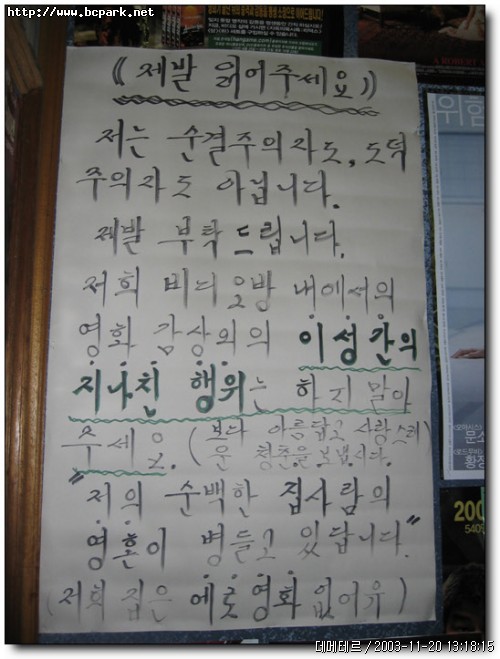 http://www.bcpark.net
《제발 읽어주세요》
저는 순결주의자도, 도덕
주의자도 아닙니다.
제발 부탁드립니다.
저희 비디오방 내에서의
영화 감상외의 이성간의
지나친 행위는 하지 말아
주세요. (보다 아름답고 사랑스러
운 청춘을 보냅시다.)
"저의 순백한 집사람의
영혼이 병들고 있답니다."
(저희 집은 에롯영화 없어유)
A ROBERT
위험
문소
황정
200
540만
데메테르 / 2003-11-20 13:18:15